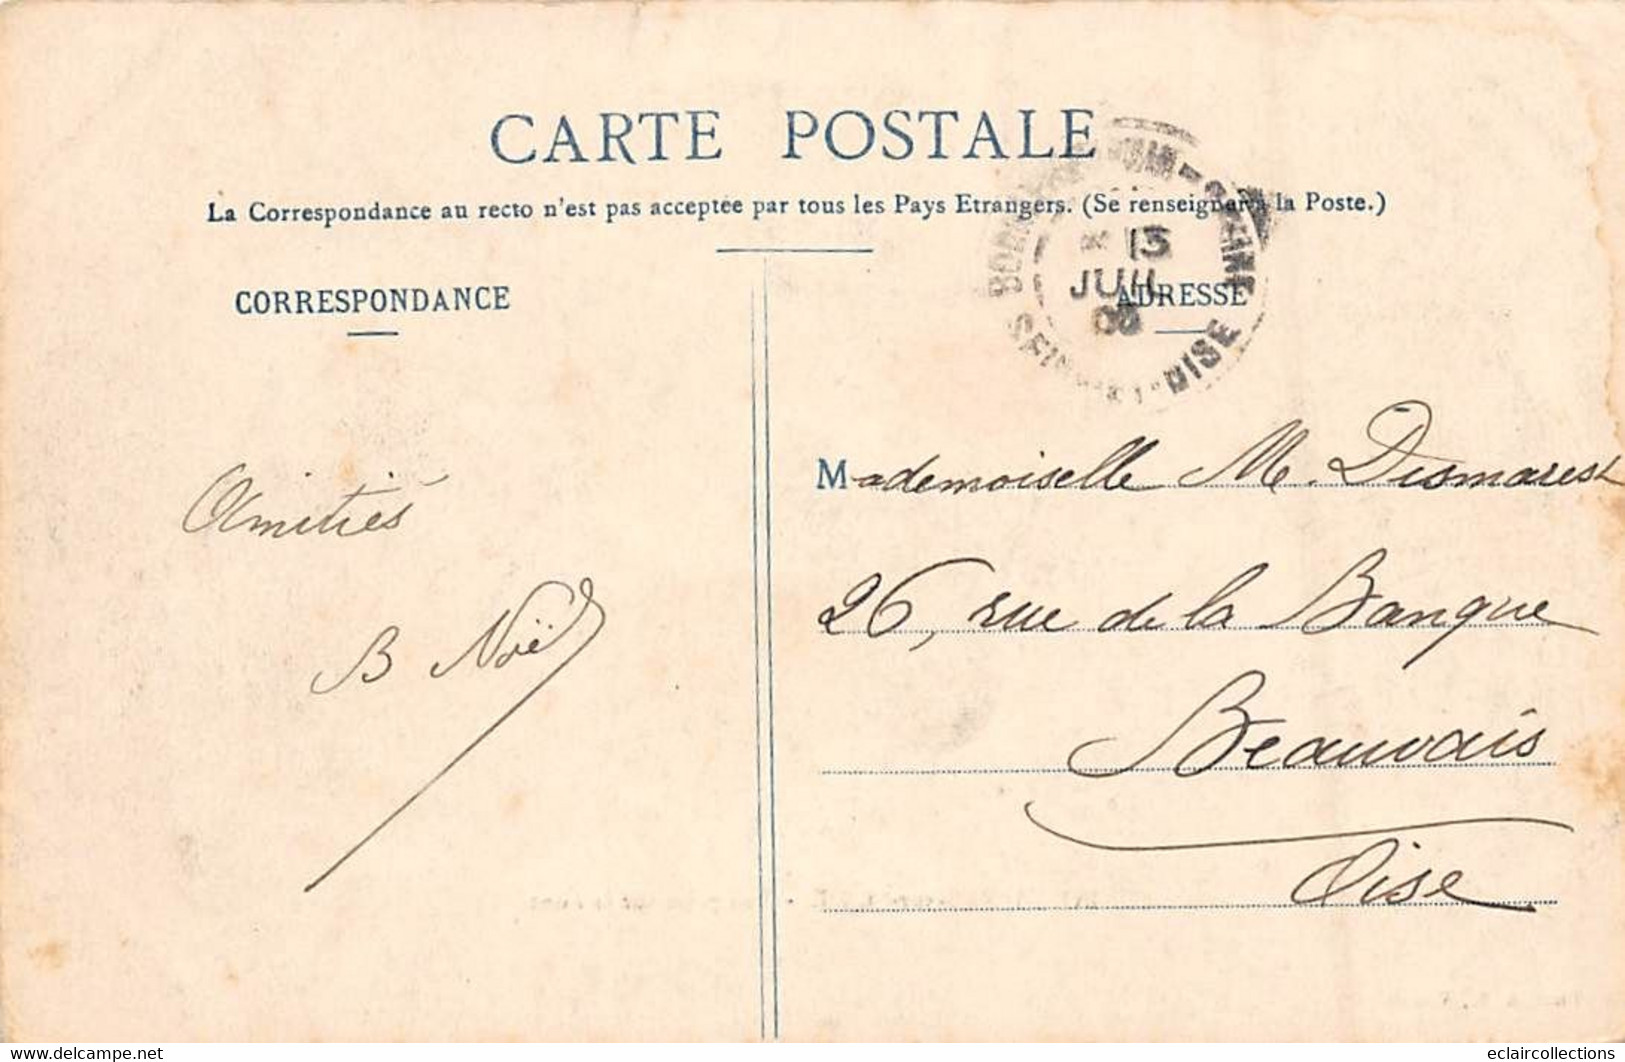 CARTE POSTALE
La Correspondance au recto n'est pas acceptée par tous les Pays Etrangers. (Se renseigner à la Poste.)
CORRESPONDANCE
ADRESSE
13
JUIL
SEINE-ET-OISE
Amitiés
B Noël
Mademoiselle M. Desmarest
26, rue de la Banque
Beauvais
Oise
www.delcampe.net
eclaircollections